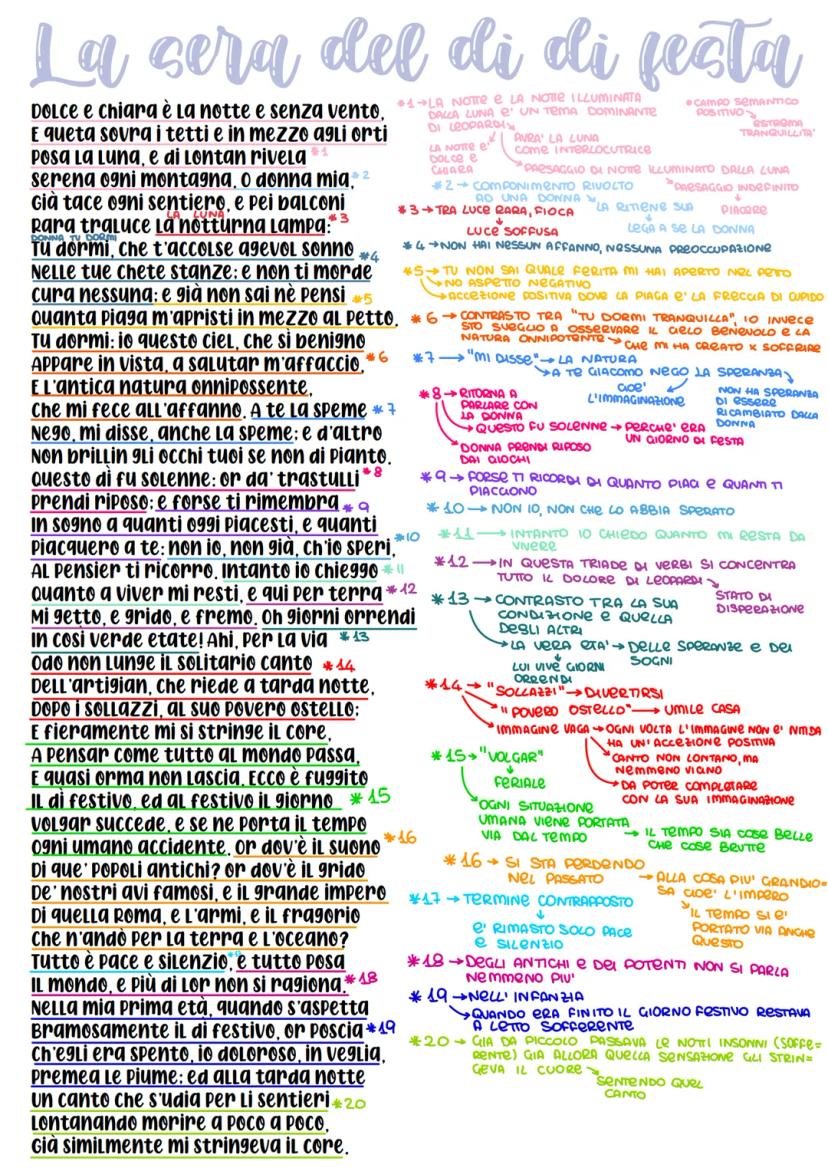 La sera del di di festa
DOLCE e CHIARA è LA NOTTE e SENZA VENTO,
E QUETA SOVRA I TETTI e IN MEZZO AGLI ORTI
POSA LA LUNA, e DI LONTAN RIVELA *1
SERENA OGNI MONTAGNA. O DONNA MIA, *2
GIÀ TACE OGNI SENTIERO, e PEI BALCONI
RARA TRALUCE LA NOTTURNA LAMPA: *3
LA LUNA
DONNA TU DORMI
TU DORMI, CHE T'ACCOLSE AGEVOL SONNO *4
NELLE TUE CHETE STANZE; e NON TI MORDE
CURA NESSUNA; e GIÀ NON SAI NÈ PENSI *5
QUANTA PIAGA M'APRISTI IN MEZZO AL PETTO.
TU DORMI: IO QUESTO CIEL, CHE SÌ BENIGNO
APPARE IN VISTA, A SALUTAR M'AFFACCIO, *6
E L'ANTICA NATURA ONNIPOSSENTE,
CHE MI FECE ALL'AFFANNO. A TE LA SPEME *7
NEGO, MI DISSE, ANCHE LA SPEME; e D'ALTRO
NON BRILLIN GLI OCCHI TUOI SE NON DI PIANTO.
QUESTO DÌ FU SOLENNE: OR DA' TRASTULLI *8
PRENDI RIPOSO; e FORSE TI RIMEMBRA *9
IN SOGNO A QUANTI OGGI PIACESTI, e QUANTI
PIACQUERO A TE: NON IO, NON GIÀ, CH'IO SPERI, *10
AL PENSIER TI RICORRO. INTANTO IO CHIEGGO *11
QUANTO A VIVER MI RESTI, e QUI PER TERRA *12
MI GETTO, e GRIDO, e FREMO. OH GIORNI ORRENDI
IN COSÌ VERDE ETATE! AHI, PER LA VIA *13
ODO NON LUNGE IL SOLITARIO CANTO *14
DELL'ARTIGIAN, CHE RIEDE A TARDA NOTTE,
DOPO I SOLLAZZI, AL SUO POVERO OSTELLO;
E FIERAMENTE MI SI STRINGE IL CORE,
A PENSAR COME TUTTO AL MONDO PASSA,
E QUASI ORMA NON LASCIA. ECCO È FUGGITO
IL DÌ FESTIVO, ED AL FESTIVO IL GIORNO *15
VOLGAR SUCCEDE, e SE NE PORTA IL TEMPO
OGNI UMANO ACCIDENTE. OR DOV'È IL SUONO *16
DI QUE' POPOLI ANTICHI? OR DOV'È IL GRIDO
DE' NOSTRI AVI FAMOSI, e IL GRANDE IMPERO
DI QUELLA ROMA, e L'ARMI, e IL FRAGORIO
CHE N'ANDÒ PER LA TERRA e L'OCEANO?
TUTTO È PACE e SILENZIO, e TUTTO POSA
IL MONDO, e PIÙ DI LOR NON SI RAGIONA. *18
NELLA MIA PRIMA ETÀ, QUANDO S'ASPETTA
BRAMOSAMENTE IL DÌ FESTIVO, OR POSCIA *19
CH'EGLI ERA SPENTO, IO DOLOROSO, IN VEGLIA,
PREMEA LE PIUME; ED ALLA TARDA NOTTE
UN CANTO CHE S'UDIA PER LI SENTIERI *20
LONTANANDO MORIRE A POCO A POCO,
GIÀ SIMILMENTE MI STRINGEVA IL CORE.
*1 → LA NOTTE e LA NOTTE ILLUMINATA
DALLA LUNA E' UN TEMA DOMINANTE
DI LEOPARDI
LA NOTTE E'
DOLCE E
CHIARA
AVRA' LA LUNA
COME INTERLOCUTRICE
PAESAGGIO DI NOTTE ILLUMINATO DALLA LUNA
PAESAGGIO INDEFINITO
PIACERE
CAMPO SEMANTICO
POSITIVO
ESTREMA
TRANQUILLITA'
*2 → COMPONIMENTO RIVOLTO
AD UNA DONNA
LA RITIENE SUA
LEGA A SE LA DONNA
*3 → TRA LUCE RARA, FIOCA
LUCE SOFFUSA
*4 → NON HAI NESSUN AFFANNO, NESSUNA PREOCCUPAZIONE
*5 → TU NON SAI QUALE FERITA MI HAI APERTO NEL PETTO
NO ASPETTO NEGATIVO
ACCEZIONE POSITIVA DOVE LA PIAGA E' LA FRECCIA DI CUPIDO
*6 → CONTRASTO TRA "TU DORMI TRANQUILLA", IO INVECE
STO SVEGLIO A OSSERVARE IL CIELO BENEVOLO E LA
NATURA ONNIPOTENTE → CHE MI HA CREATO X SOFFRIRE
*7 → "MI DISSE" → LA NATURA
A TE GIACOMO NEGO LA SPERANZA
CIOE'
L'IMMAGINAZIONE
NON HA SPERANZA
DI ESSERE
RICAMBIATO DALLA
DONNA
*8 → RITORNA A
PARLARE CON
LA DONNA
QUESTO FU SOLENNE → PERCHE' ERA
UN GIORNO DI FESTA
DONNA PRENDI RIPOSO
DAI GIOCHI
*9 → FORSE TI RICORDI DI QUANTO PIACI E QUANTI TI
PIACCIONO
*10 → NON IO, NON CHE LO ABBIA SPERATO
*11 → INTANTO IO CHIEDO QUANTO MI RESTA DA
VIVERE
*12 → IN QUESTA TRIADE DI VERBI SI CONCENTRA
TUTTO IL DOLORE DI LEOPARDI
STATO DI
DISPERAZIONE
*13 → CONTRASTO TRA LA SUA
CONDIZIONE E QUELLA
DEGLI ALTRI
LA VERA ETA' → DELLE SPERANZE E DEI
SOGNI
LUI VIVE GIORNI
ORRENDI
*14 → "SOLLAZZI" → DIVERTIRSI
"POVERO OSTELLO" → UMILE CASA
IMMAGINE VAGA → OGNI VOLTA L'IMMAGINE NON E' NITIDA
HA UN'ACCEZIONE POSITIVA
CANTO NON LONTANO, MA
NEMMENO VICINO
DA POTER COMPLETARE
CON LA SUA IMMAGINAZIONE
*15 → "VOLGAR"
FERIALE
OGNI SITUAZIONE
UMANA VIENE PORTATA
VIA DAL TEMPO → IL TEMPO SIA COSE BELLE
CHE COSE BRUTTE
*16 → SI STA PERDENDO
NEL PASSATO → ALLA COSA PIU' GRANDIO=
SA CIOE' L'IMPERO
IL TEMPO SI E'
PORTATO VIA ANCHE
QUESTO
*17 → TERMINE CONTRAPPOSTO
E' RIMASTO SOLO PACE
E SILENZIO
*18 → DEGLI ANTICHI E DEI POTENTI NON SI PARLA
NEMMENO PIU'
*19 → NELL'INFANZIA
QUANDO ERA FINITO IL GIORNO FESTIVO RESTAVA
A LETTO SOFFERENTE
*20 → GIA DA PICCOLO PASSAVA LE NOTTI INSONNI (SOFFE=
RENTE) GIA ALLORA QUELLA SENSAZIONE GLI STRIN=
GEVA IL CUORE
SENTENDO QUEL
CANTO